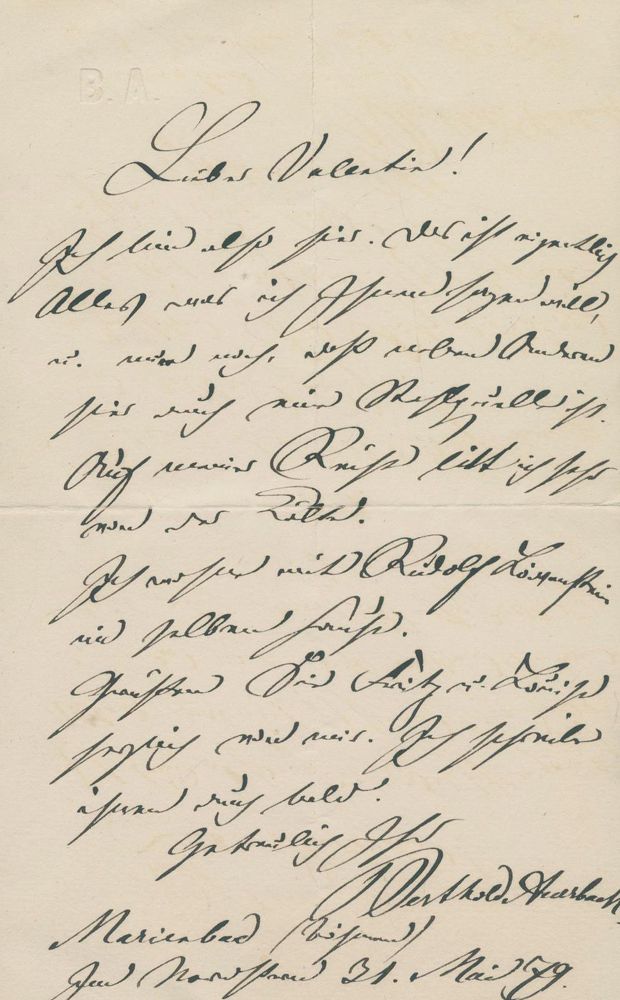 B. A.
Lieber Valentin!
Ich bin also hier. Das ist eigentlich
Alles was ich Ihnen sagen will,
u. nur noch, daß neben Anderem
hier auch eine ist.
Auf meiner Reise litt ich sehr
von der Kälte.
Ich wohne mit Rudolf Löwenstein
im selben Hause.
Grüßen Sie Fritz u. Louise
herzlich von mir. Ich schreibe
ihnen auch bald.
Getreulich Ihr
Berthold Auerbach
Marienbad (Böhmen)
Im 31. Mai 79.